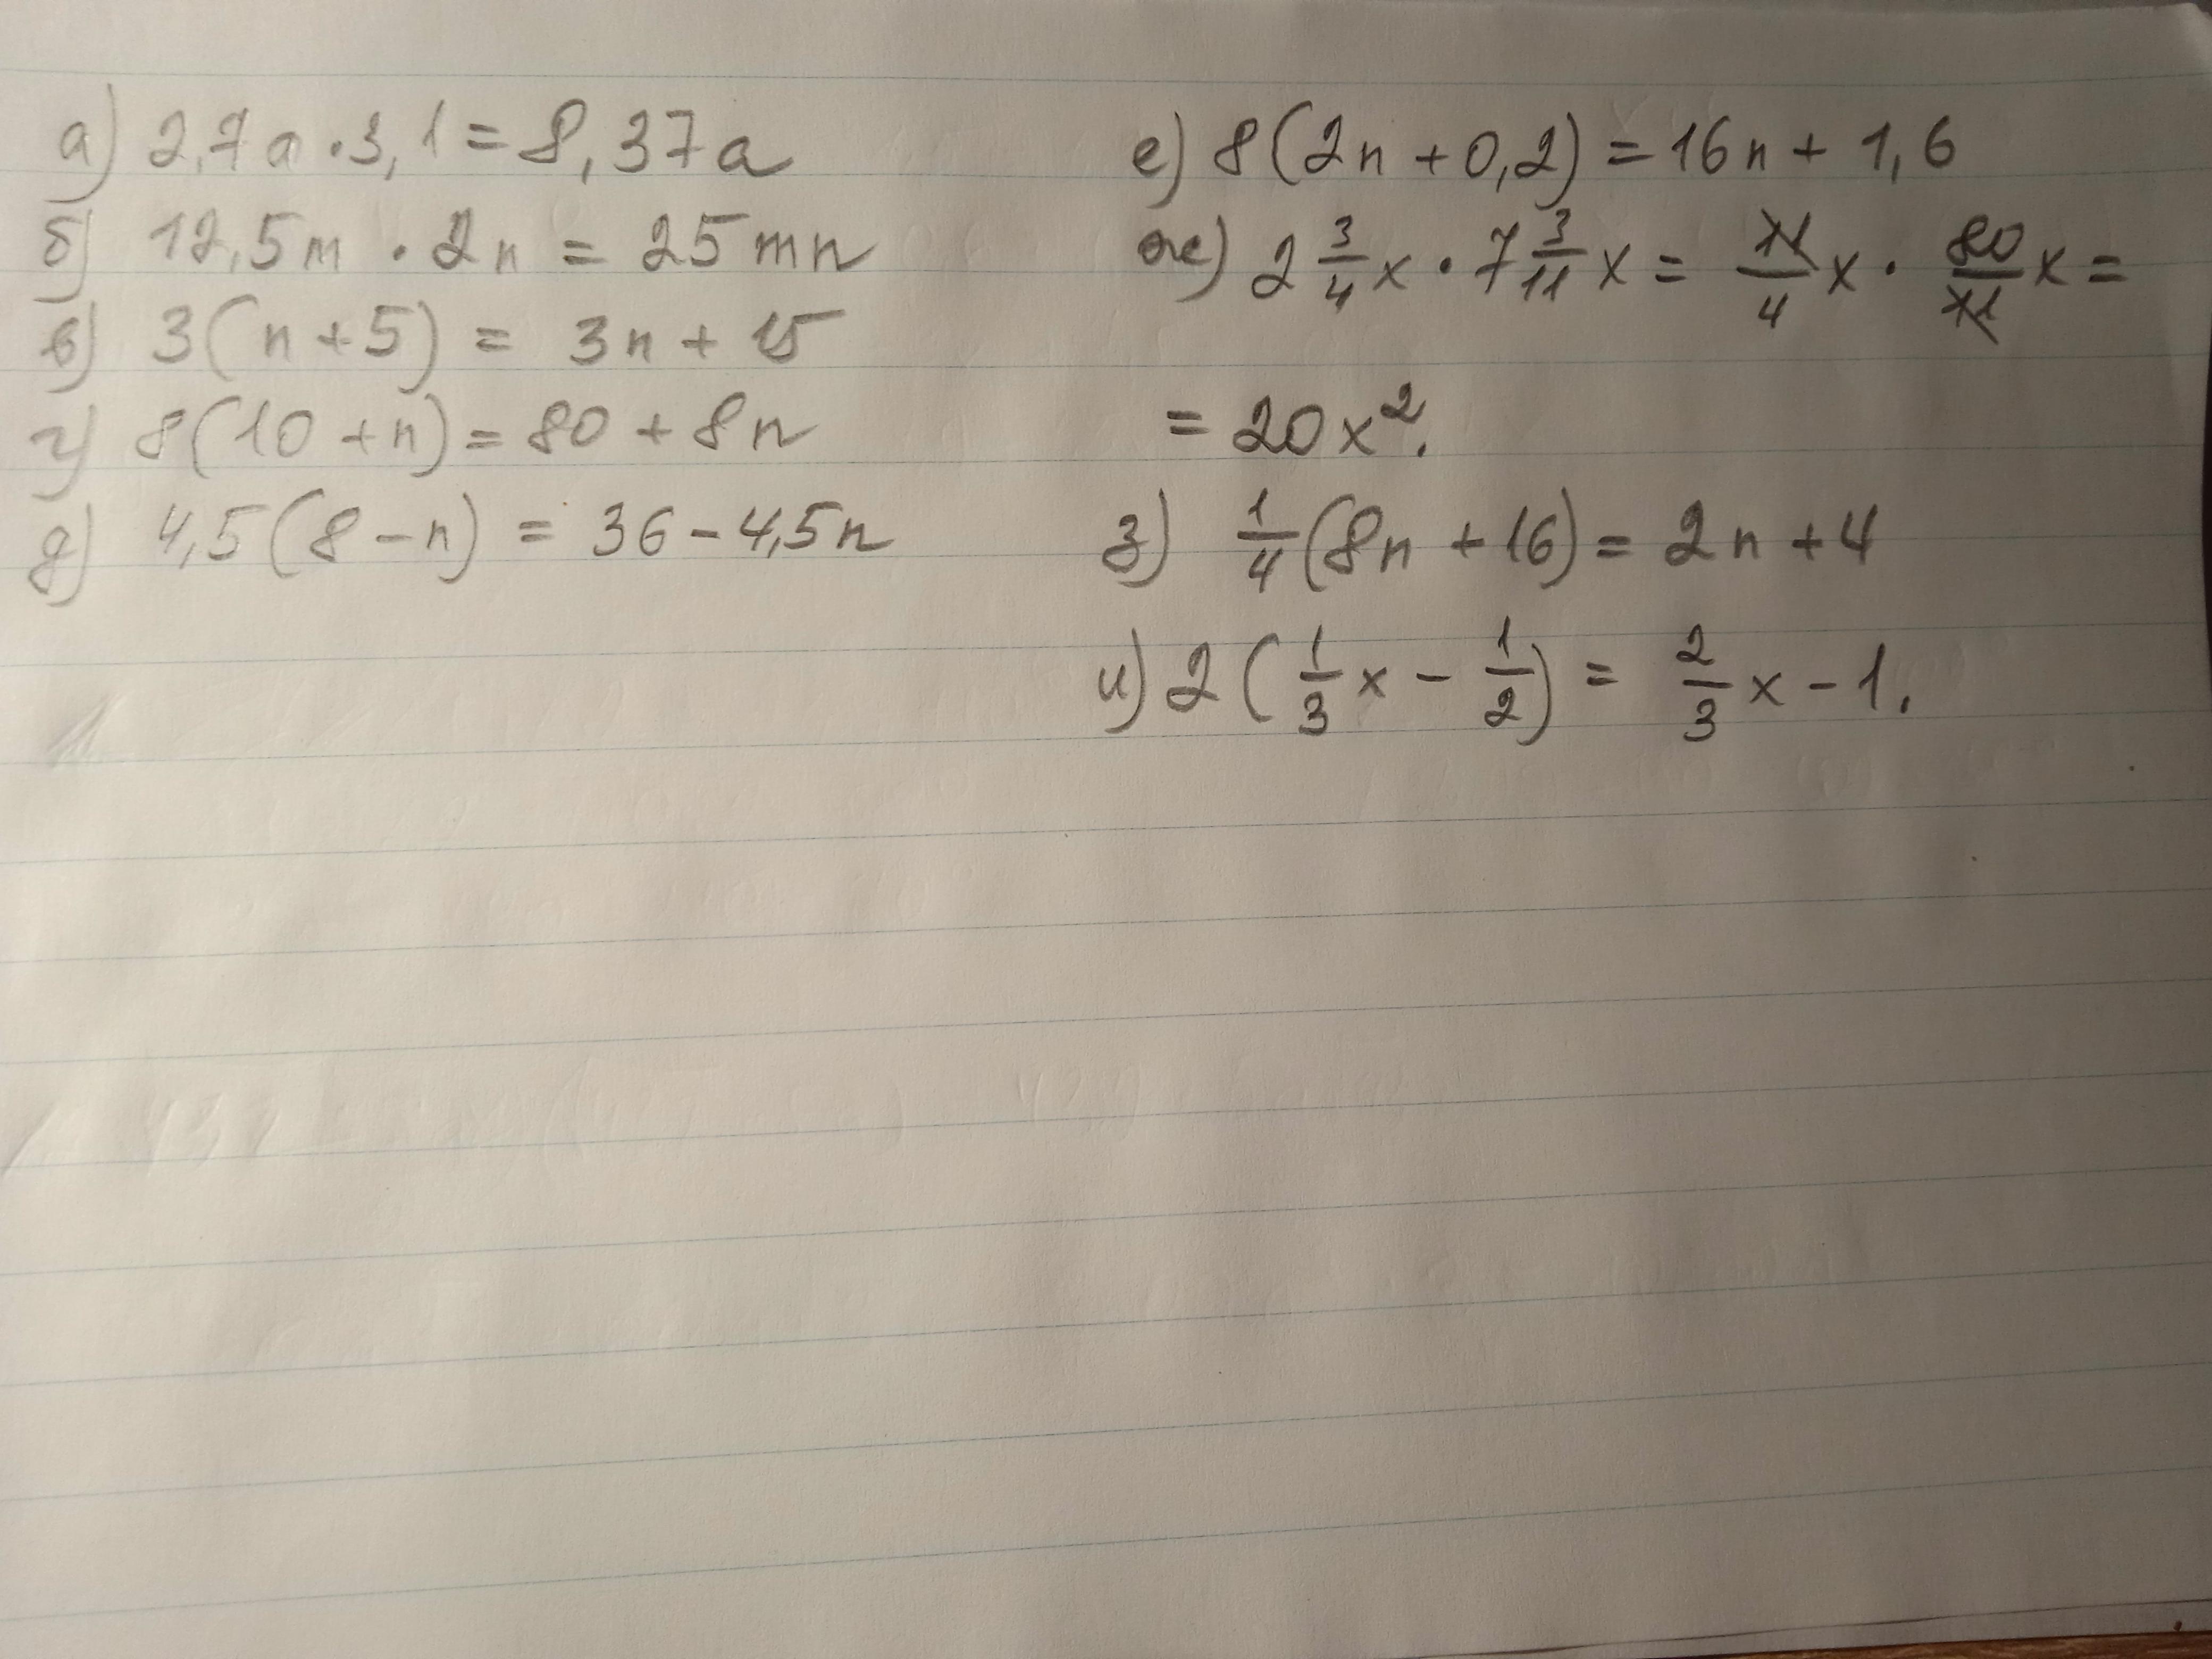 а) 2,7a · 3,1 = 8,37a
б) 12,5m · 2n = 25mn
в) 3(n+5) = 3n + 15
г) 8(10+n) = 80 + 8n
д) 4,5(8-n) = 36 - 4,5n
е) 8(2n+0,2) = 16n + 1,6
ж) 2 3/4 x · 7 3/11 x = 11/4 x · 80/11 x =
= 20x².
з) 1/4 (8n+16) = 2n+4
и) 2(1/3 x - 1/2) = 2/3 x - 1.